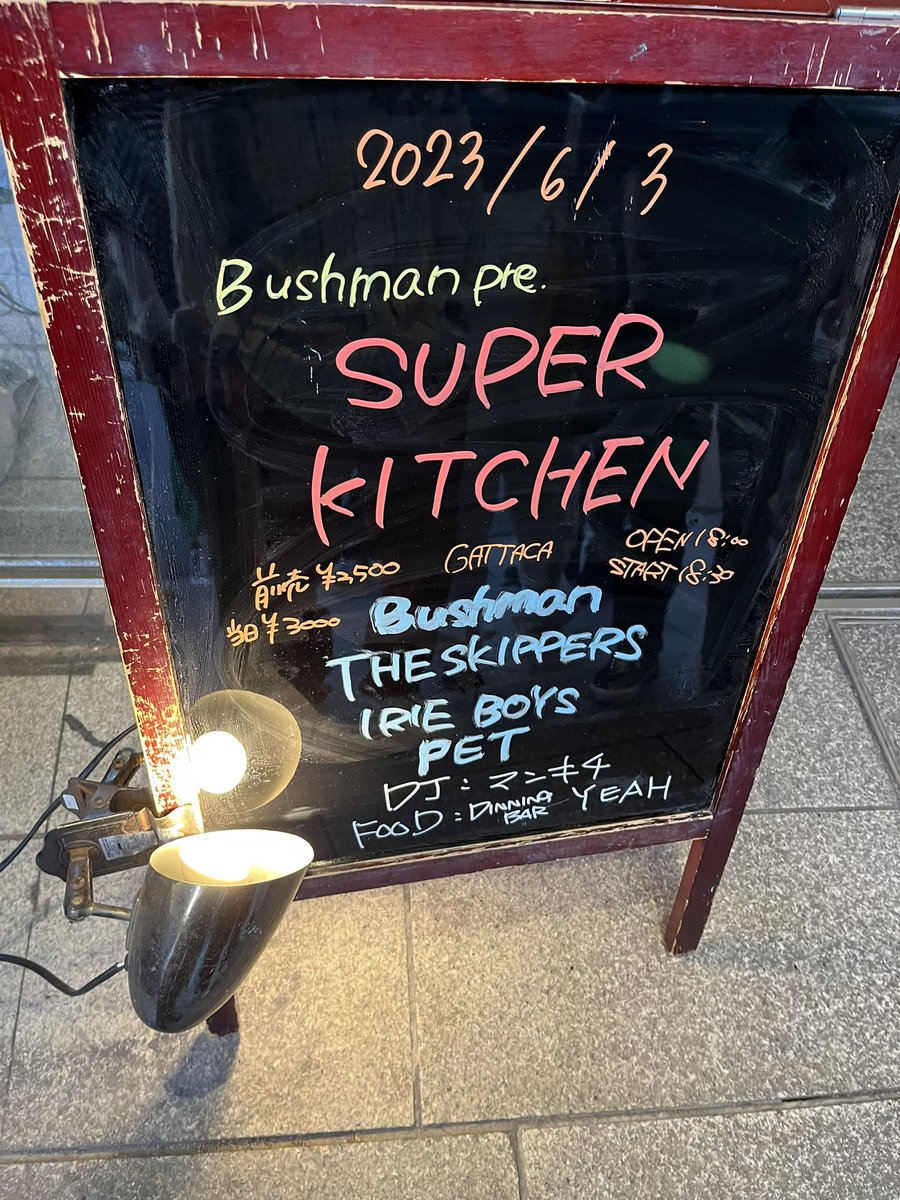 2023/6/3
Bushman pre.
SUPER
KITCHEN
GATTACA
OPEN 18:00
START 18:30
前売 ¥2,500
当日 ¥3000
Bushman
THE SKIPPERS
IRIE BOYS
PET
DJ: マンキ4
FOOD: DINNING BAR YEAH